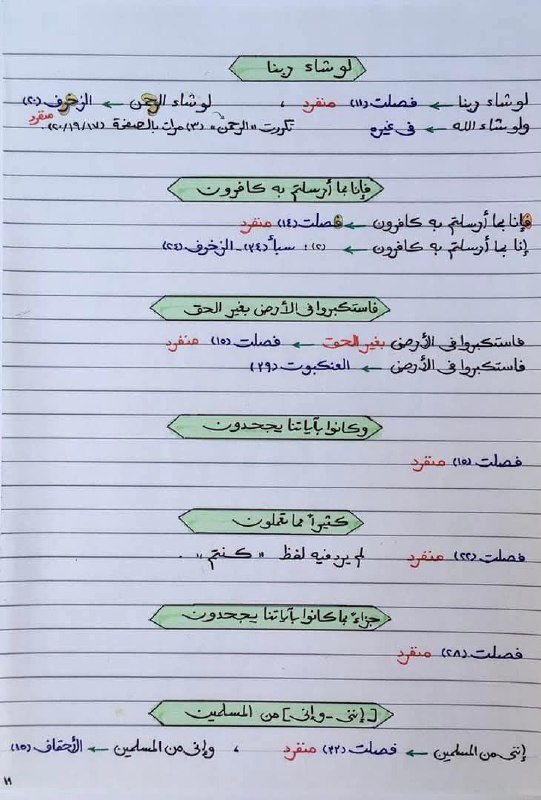 لو شاء ربنا
لو شاء ربنا ← فصلت (١٤) منفرد ، لو شاء الرحمن ← الزخرف (٢٠) منفرد
ولو شاء الله ← في غيره تكررت "الرحمن" (٣) مرات بالصفحة (٢٠/١٩/١٧)
فإنا بما أرسلتم به كافرون
فإنا بما أرسلتم به كافرون ← فصلت (١٤) منفرد
إنا بما أرسلتم به كافرون ← (٢): سبأ (٣٤) - الزخرف (٢٤)
فاستكبروا في الأرض بغير الحق
فاستكبروا في الأرض بغير الحق ← فصلت (١٥) منفرد
فاستكبروا في الأرض ← العنكبوت (٣٩)
وكانوا بآياتنا يجحدون
فصلت (١٥) منفرد
كثيراً مما تعملون
فصلت (٢٢) منفرد لم يرد فيه لفظ "كنتم" .
جزاءً بما كانوا بآياتنا يجحدون
فصلت (٢٨) منفرد
[إنني - وإني] من المسلمين
إنني من المسلمين ← فصلت (٣٣) منفرد ، وإني من المسلمين ← الأحقاف (١٥)